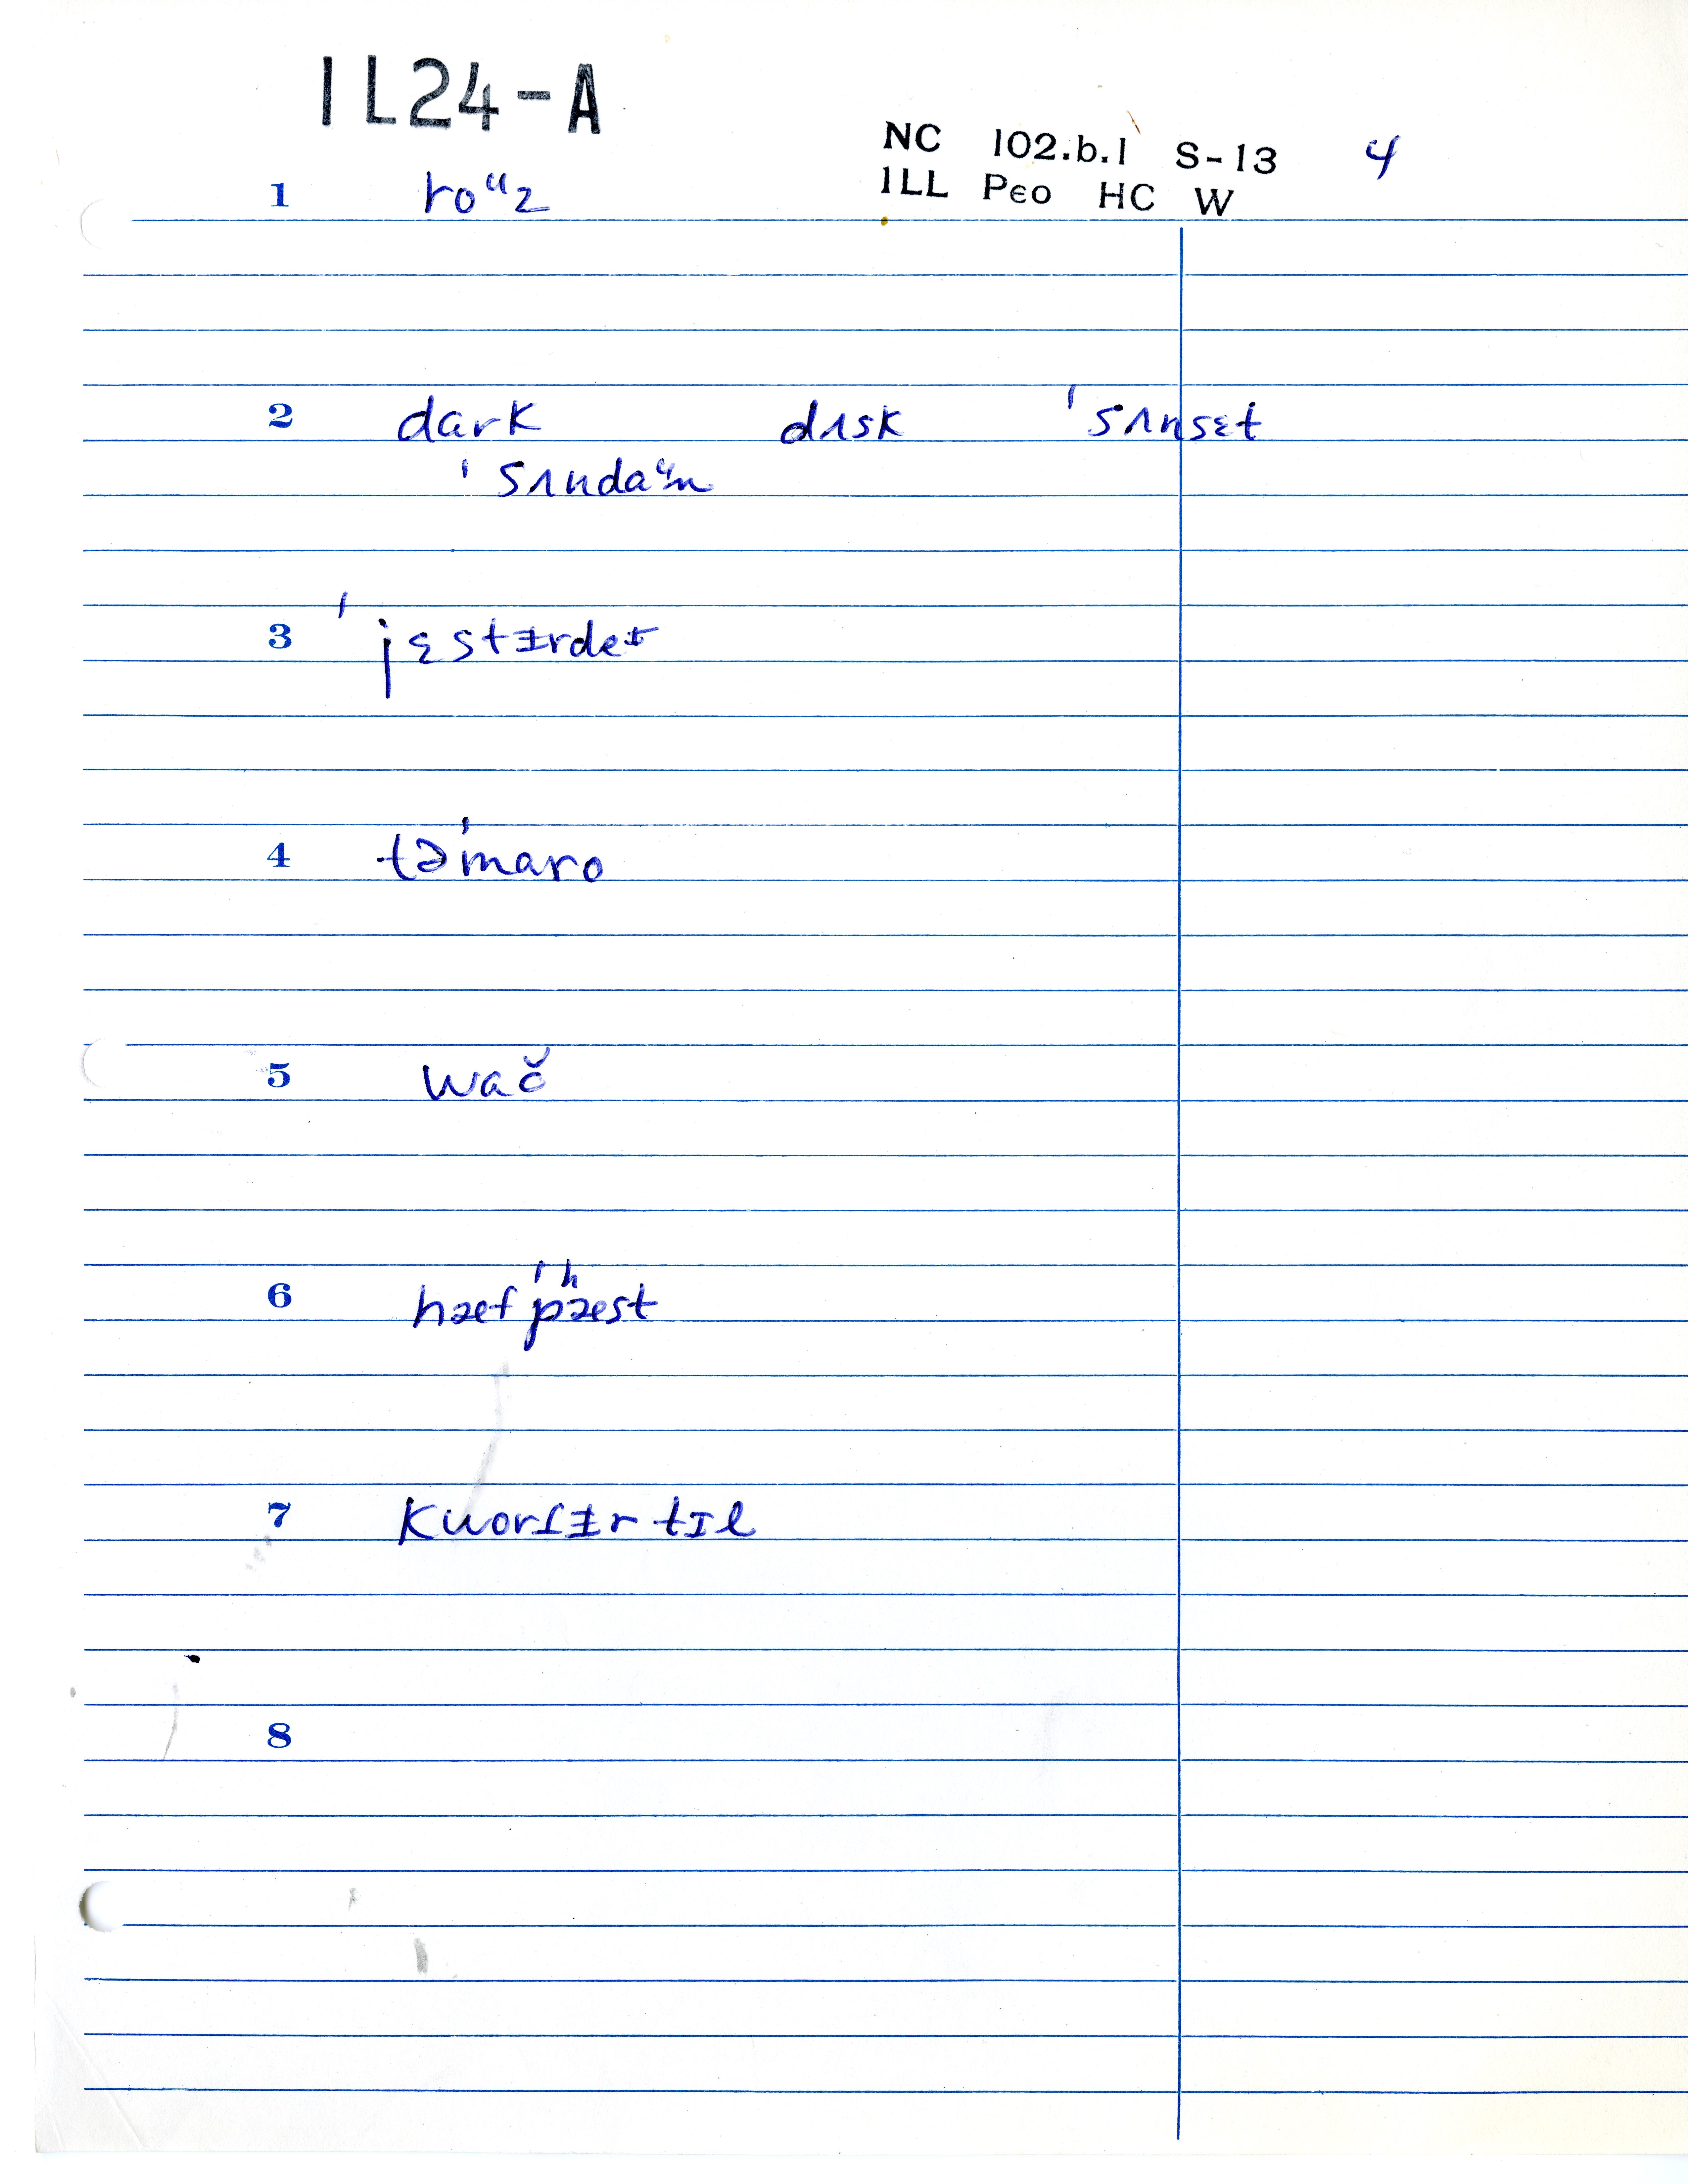 1L24-A
NC 102.b.1 S-13 4
ILL Pєo HC W
1 roᵘz
2 dark dʌsk ˈsʌnsɛt
ˈsʌndaᵘn
3 ˈjɛstɨrdeᵻ
4 təˈmaro
5 wač
6 hæfˈpʰæst
7 kworɾɨr tɪl
8